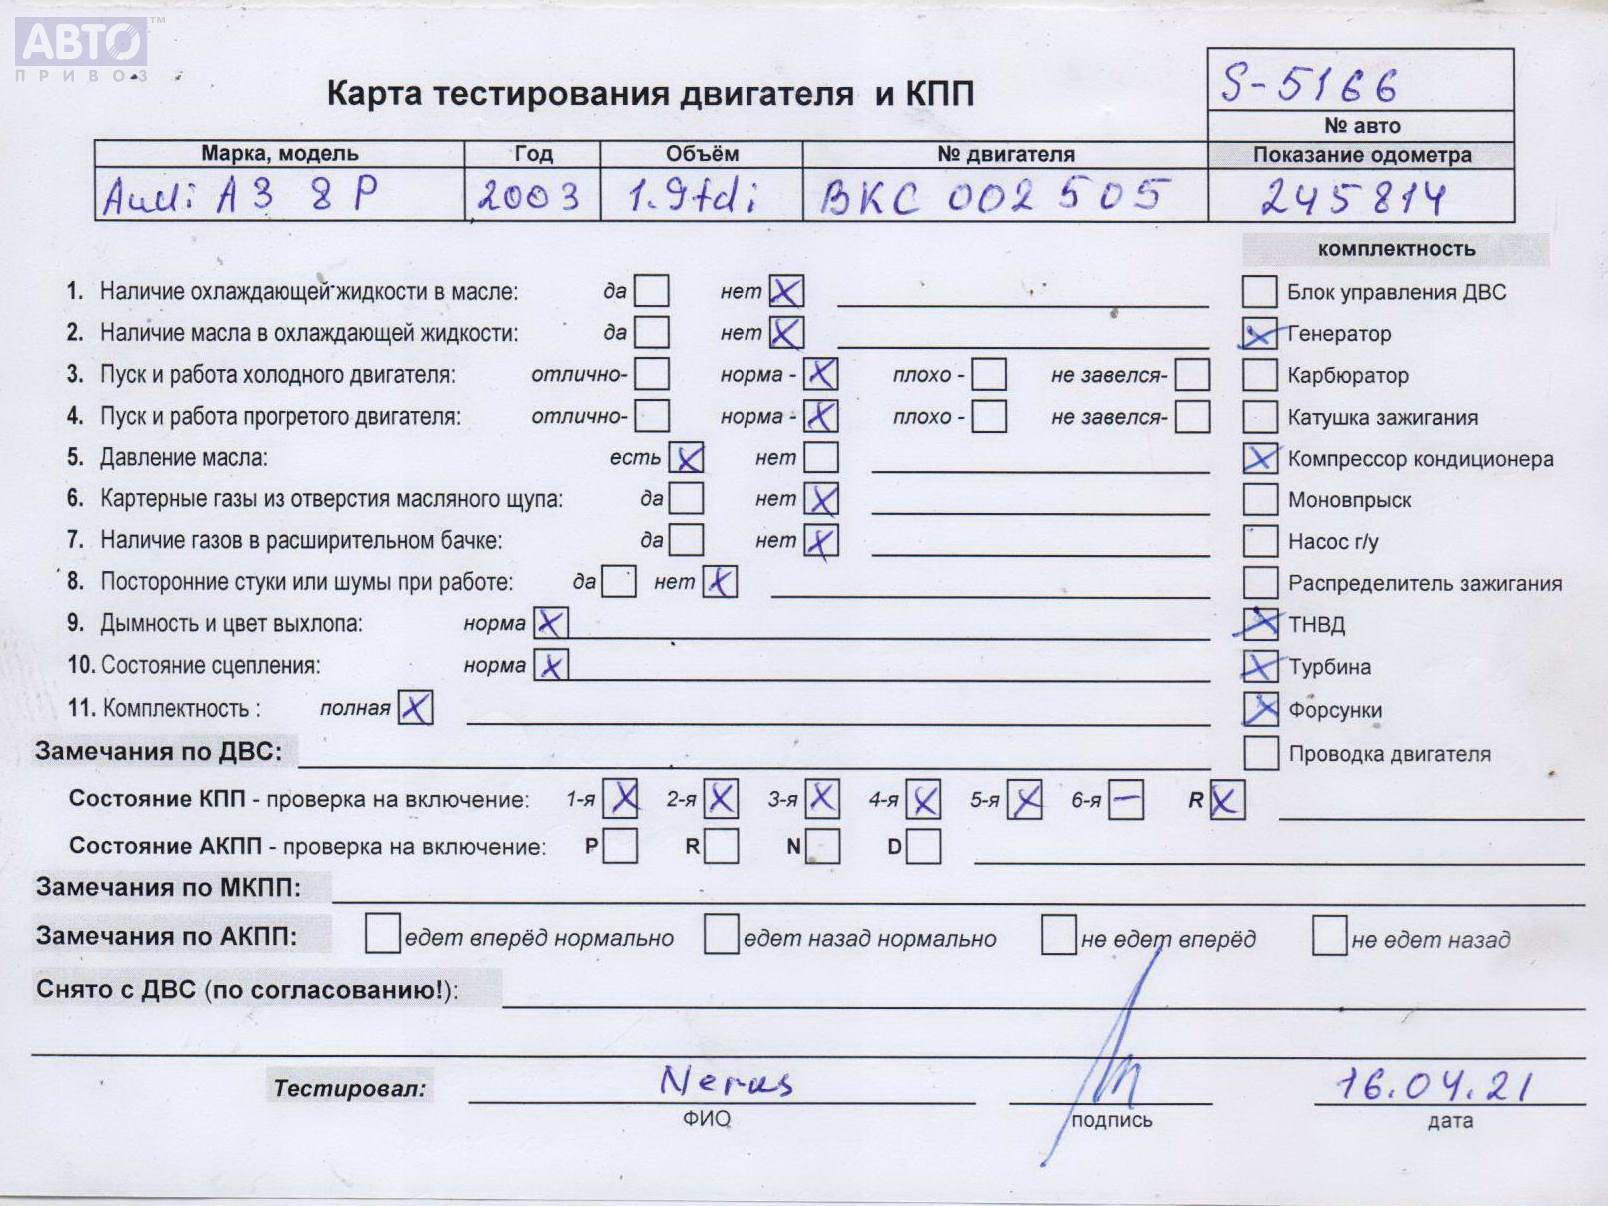 АВТО™
ПРИВОЗ
Карта тестирования двигателя и КПП
S-5166
№ авто
Марка, модель Год Объём № двигателя Показание одометра
Audi A3 8P 2003 1.9tdi BKC 002505 245814
комплектность
1. Наличие охлаждающей жидкости в масле: да нет X Блок управления ДВС
2. Наличие масла в охлаждающей жидкости: да нет X X Генератор
3. Пуск и работа холодного двигателя: отлично- норма - X плохо - не завелся- Карбюратор
4. Пуск и работа прогретого двигателя: отлично- норма - X плохо - не завелся- Катушка зажигания
5. Давление масла: есть X нет X Компрессор кондиционера
6. Картерные газы из отверстия масляного щупа: да нет X Моновпрыск
7. Наличие газов в расширительном бачке: да нет X Насос г/у
8. Посторонние стуки или шумы при работе: да нет X Распределитель зажигания
9. Дымность и цвет выхлопа: норма X X ТНВД
10. Состояние сцепления: норма X X Турбина
11. Комплектность : полная X X Форсунки
Замечания по ДВС: Проводка двигателя
Состояние КПП - проверка на включение: 1-я X 2-я X 3-я X 4-я X 5-я X 6-я – R X
Состояние АКПП - проверка на включение: P R N D
Замечания по МКПП:
Замечания по АКПП: едет вперёд нормально едет назад нормально не едет вперёд не едет назад
Снято с ДВС (по согласованию!):
Тестировал: 16.04.21
ФИО подпись дата